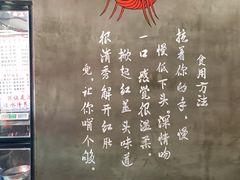 食用方法
拉着你的手，慢
慢低下头。深情吻
一口感觉很温柔。
掀起红盖头味道
很清秀解开红肚
兜，让你啃个够。